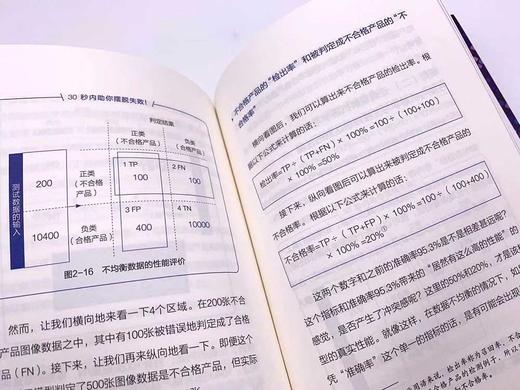 30 秒内助你摆脱失败！
判定结果
正类
（不合格产品）
负类
（合格产品）
测试数据的输入
200
正类
（不合格产品）
1 TP
100
2 FN
100
10400
负类
（合格产品）
3 FP
400
4 TN
10000
图2-16 不均衡数据的性能评价
然而，让我们横向地来看一下4个区域。在200张不合
产品图像数据之中，其中有100张被错误地判定成了合格
产品（FN）。接下来，让我们再来纵向地看一下。即便这个
模型判定了500张图像数据是不合格产品，但实际
不合格产品的“检出率”和被判定成不合格产品的“不
合格率”
横向看图后，我们可以算出来不合格产品的检出率。根
据以下公式来计算的话：
检出率=TP÷（TP+FN）× 100% =100÷（100+100）
× 100% =50%
接下来，纵向看图后可以算出来被判定成不合格产品的
不合格率。根据以下公式来计算的话：
不合格率=TP÷（TP+FP）× 100% =100÷（100+400）
× 100% =20%①
这两个数字和之前的准确率95.3%是不是相差甚远呢？
这个指标和准确率95.3%带来的“居然有这么高的性能”的
感觉，是否产生了冲突感呢？这里的50%和20%，才是该
型的真实性能。就像这样，在数据不均衡的情况下，如
凭“准确率”这个单一的指标的话，是有可能会出现